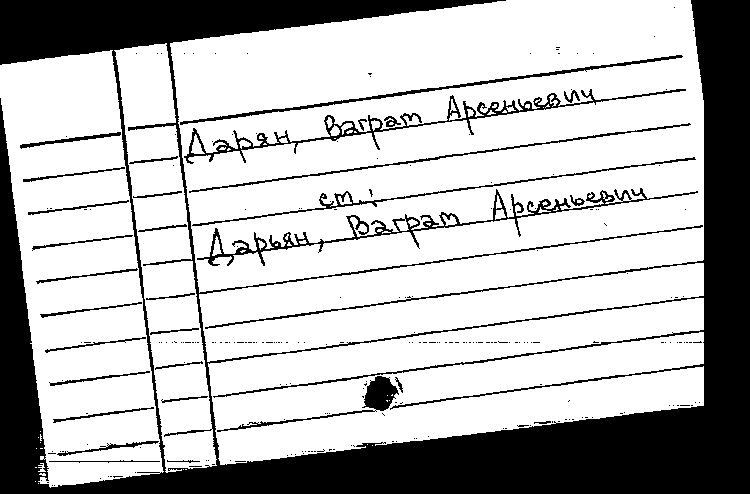 Дарян, Ваграт Арсеньевич
ст.:
Дарьян, Ваграт Арсеньевич